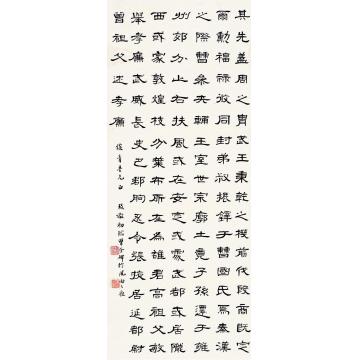 其先蓋周之胄武王秉乾之機翦伐殷商既定
爾勳福祿攸同封弟叔振鐸于曹國氏焉秦漢
之際曹參夾輔王室世宗廓土竟子孫遷于雍
州郊分止右扶風或在安定或處武都或居隴
西或家敦煌枝分葉布所在為雄君高祖父敏
舉孝廉武威長史巴郡朐忍令張掖居延都尉
曾祖父述孝廉
吾兄正
臨曹全碑於滬